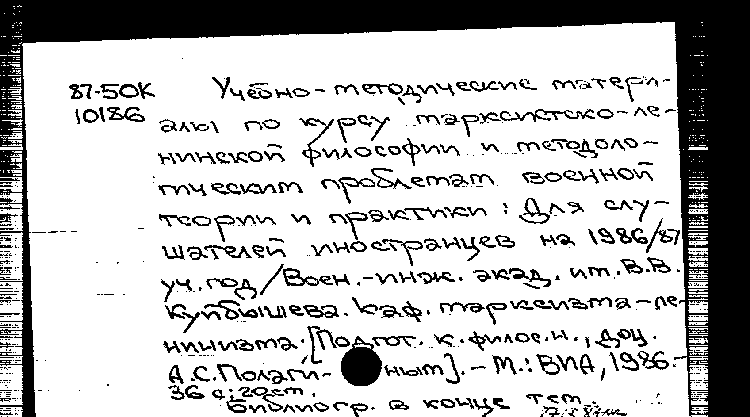 87-50К Учебно-методические матери-
10186 алы по курсу марксистско-ле-
нинской философии и методоло-
гическим проблемам военной
теории и практики : Для слу-
шателей иностранцев на 1986/87
уч. год / Воен.-инж. акад. им. В.В.
Куйбышева. Каф. марксизма-ле-
нинизма. [Подгот. к. филос. н., доц.
А.С. Полаги- ным]. - М.: ВИА, 1986. -
36 с; 20 см.
Библиогр. в конце тем.